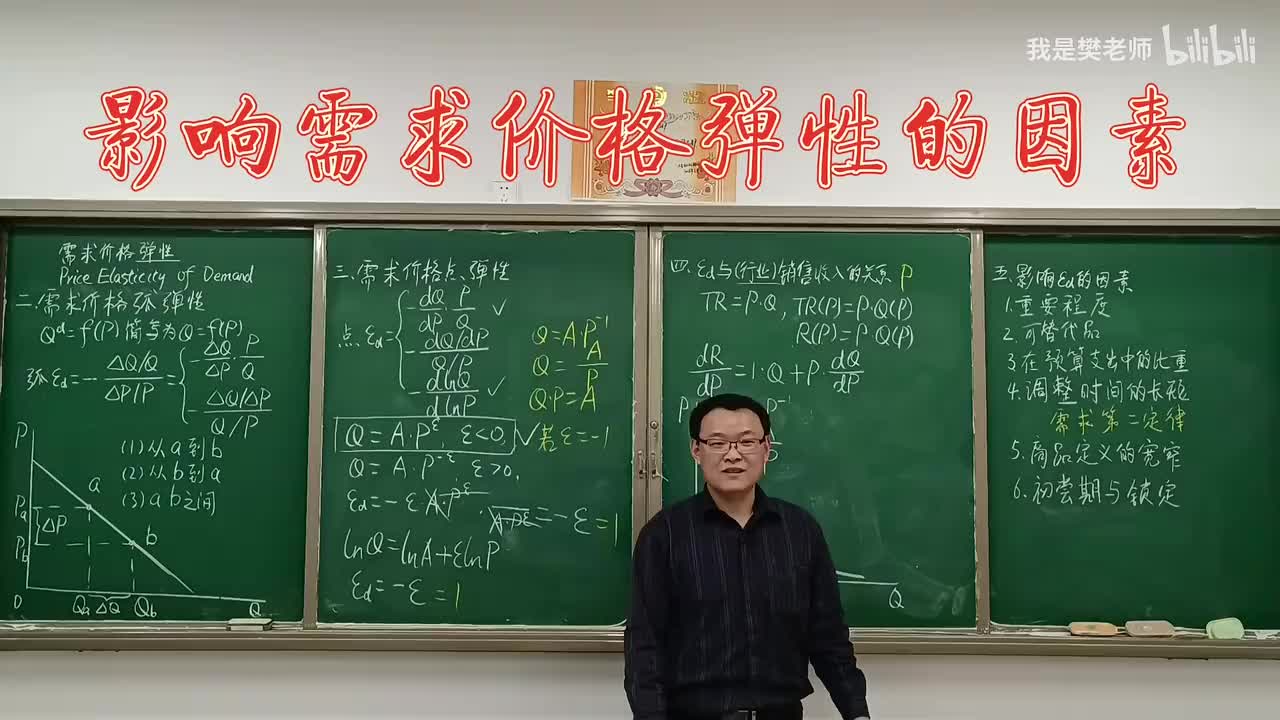 我是樊老师 bilibili
影响需求价格弹性的因素
需求价格弹性
Price Elasticity of Demand
二.需求价格弧弹性
Q^d=f(P)简写为Q=f(P)
弧 εd=-(ΔQ/Q)/(ΔP/P)={-ΔQ/ΔP·P/Q
-(ΔQ/ΔP)/(Q/P)
(1)从a到b
(2)从b到a
(3)a b之间
P
a
Pa
ΔP
Pb
b
0
Qa ΔQ Qb
Q
三.需求价格点弹性
点.εd={-dQ/dP·P/Q ✓
-(dQ/dP)/(Q/P)
-dlnQ/dlnP ✓
Q=A·P^-1
Q=A/P
Q·P=A
Q=A·P^ε, ε<0, ✓若ε=-1
Q=A·P^-ε, ε>0,
lnQ=lnA+εlnP
εd=-ε=1
四.εd与(行业)销售收入的关系 P
TR=P·Q, TR(P)=P·Q(P)
R(P)=P·Q(P)
dR/dP=1·Q+P·dQ/dP
Q
五.影响εd的因素
1.重要程度
2.可替代品
3.在预算支出中的比重
4.调整时间的长短
需求第二定律
5.商品定义的宽窄
6.初尝期与锁定